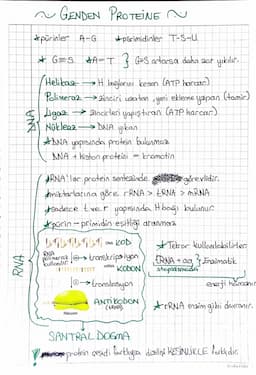 ~ GENDEN PROTEİNE ~
*pürinler A-G *pirimidinler T-S-U
* G≡S *A=T } G≡S artarsa daha zor yıkılır.
DNA
Helikaz → H bağlarını keser (ATP harcar)
Polimeraz → zinciri uzatan, yeni ekleme yapan (tamir)
Ligaz → zincirleri yapıştıran (ATP harcar)
Nükleaz → DNA yıkan
*DNA yapısında protein bulunmaz
DNA + histon proteini = kromatin
RNA
*RNA'lar protein sentezinde görevlidir.
*miktarlarına göre rRNA > tRNA > mRNA
*sadece t ve r yapısında H bağı bulunur.
*pürin - primidin eşitliği aranmaz
DNA KOD
RNA polimeraz kullanılır
→ transkripsiyon
KODON
→ translasyon
ANTİKODON
(tRNA)
Ribozom
* Tekrar kullanılabilirler
tRNA + aa } Enzimatik
enerji harcanır
*rRNA enzim gibi davranır.
SANTRAL DOGMA
protein çeşidi farklıysa dizilim KESİNLİKLE farklıdır.